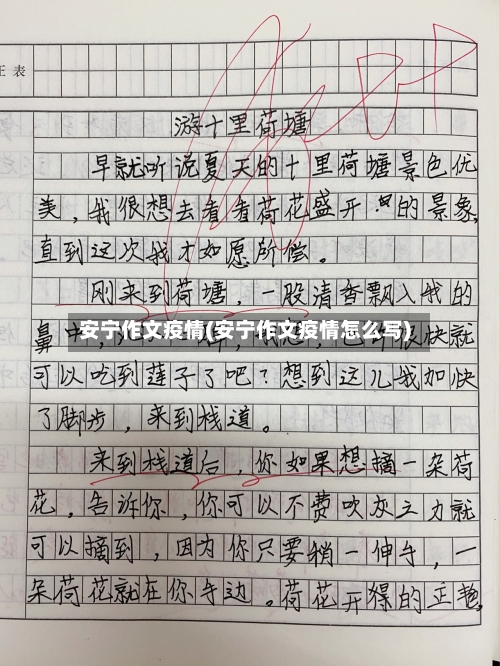 正表
游十里荷塘
早就听说夏天的十里荷塘景色优
美，我很想去看看荷花盛开的景象，
直到这次我才如愿所偿。
刚来到荷塘，一股清香飘入我的
鼻中，
安宁作文疫情(安宁作文疫情怎么写)
就
可以吃到莲子了吧？想到这儿我加快
了脚步，来到栈道。
来到栈道后，你如果想摘一朵荷
花，告诉你，你可以不费吹灰之力就
可以摘到，因为你只要稍一伸手，一
朵荷花就在你手边。荷花开得的正艳，